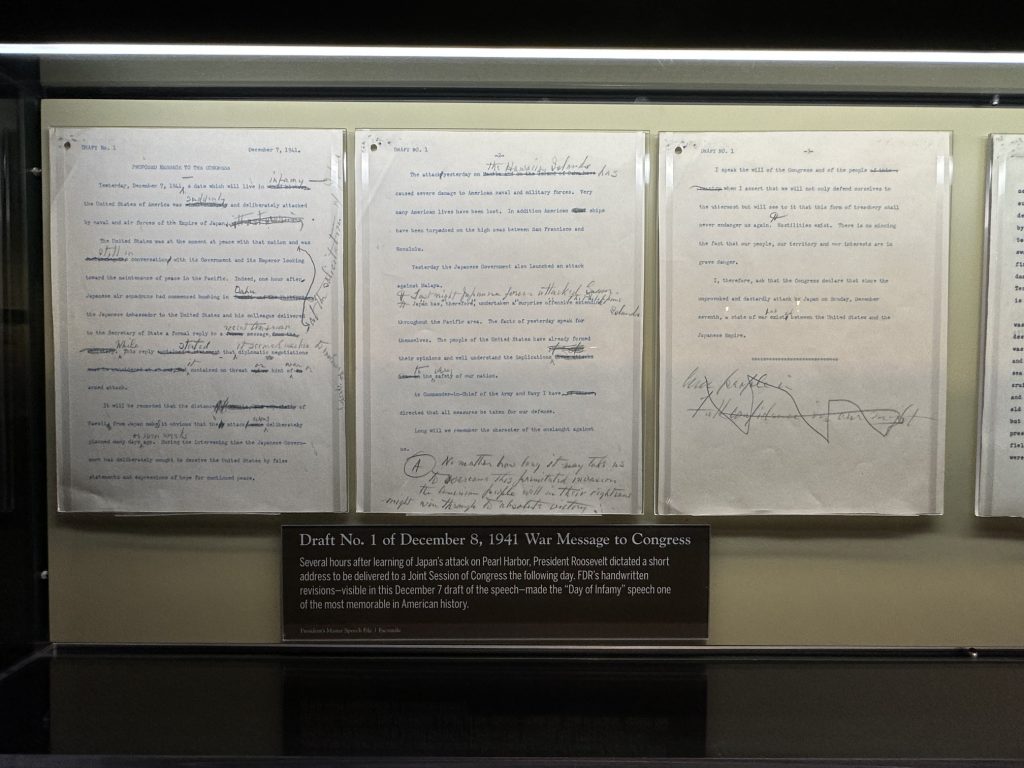 DRAFT No. 1
December 7, 1941.
PROPOSED MESSAGE TO THE CONGRESS
infamy
Yesterday, December 7, 1941, a date which will live in
suddenly
the United States of America was and deliberately attacked
by naval and air forces of the Empire of Japan
The United States was at the moment at peace with that nation and was
still in
conversation with its Government and its Emperor looking
toward the maintenance of peace in the Pacific. Indeed, one hour after
Oahu
Japanese air squadrons had commenced bombing in
the Japanese Ambassador to the United States and his colleague delivered
to the Secretary of State a formal reply to a message
While stated it seemed useless to
This reply that diplomatic negotiations
it
contained no threat hint of
armed attack.
It will be recorded that the distance
Hawaii, from Japan make it obvious that the attack deliberately
or even weeks
planned many days ago. During the intervening time the Japanese Govern-
ment had deliberately sought to deceive the United States by false
statements and expressions of hope for continued peace.
DRAFT NO. 1
-2-
the Hawaiian Islands
The attack yesterday on has
caused severe damage to American naval and military forces. Very
many American lives have been lost. In addition American ships
have been torpedoed on the high seas between San Francisco and
Honolulu.
Yesterday the Japanese Government also launched an attack
against Malaya.
Last night Japanese forces attacked Guam
Islands
Japan has, therefore, undertaken a surprise offensive extending
throughout the Pacific area. The facts of yesterday speak for
themselves. The people of the United States have already formed
their opinions and well understand the implications
the safety of our nation.
As Commander-in-Chief of the Army and Navy I have
directed that all measures be taken for our defense.
Long will we remember the character of the onslaught against
us.
A No matter how long it may take us
to overcome this premeditated invasion
the American people will in their righteous
might win through to absolute victory.
DRAFT NO. 1
-3-
I speak the will of the Congress and of the people
when I assert that we will not only defend ourselves to
the uttermost but will see to it that this form of treachery shall
never endanger us again. Hostilities exist. There is no mincing
the fact that our people, our territory and our interests are in
grave danger.
I, therefore, ask that the Congress declare that since the
unprovoked and dastardly attack by Japan on Sunday, December
seventh, a state of war between the United States and the
Japanese Empire.
****************
Draft No. 1 of December 8, 1941 War Message to Congress
Several hours after learning of Japan's attack on Pearl Harbor, President Roosevelt dictated a short
address to be delivered to a Joint Session of Congress the following day. FDR's handwritten
revisions—visible in this December 7 draft of the speech—made the "Day of Infamy" speech one
of the most memorable in American history.
President's Master Speech File / Facsimile